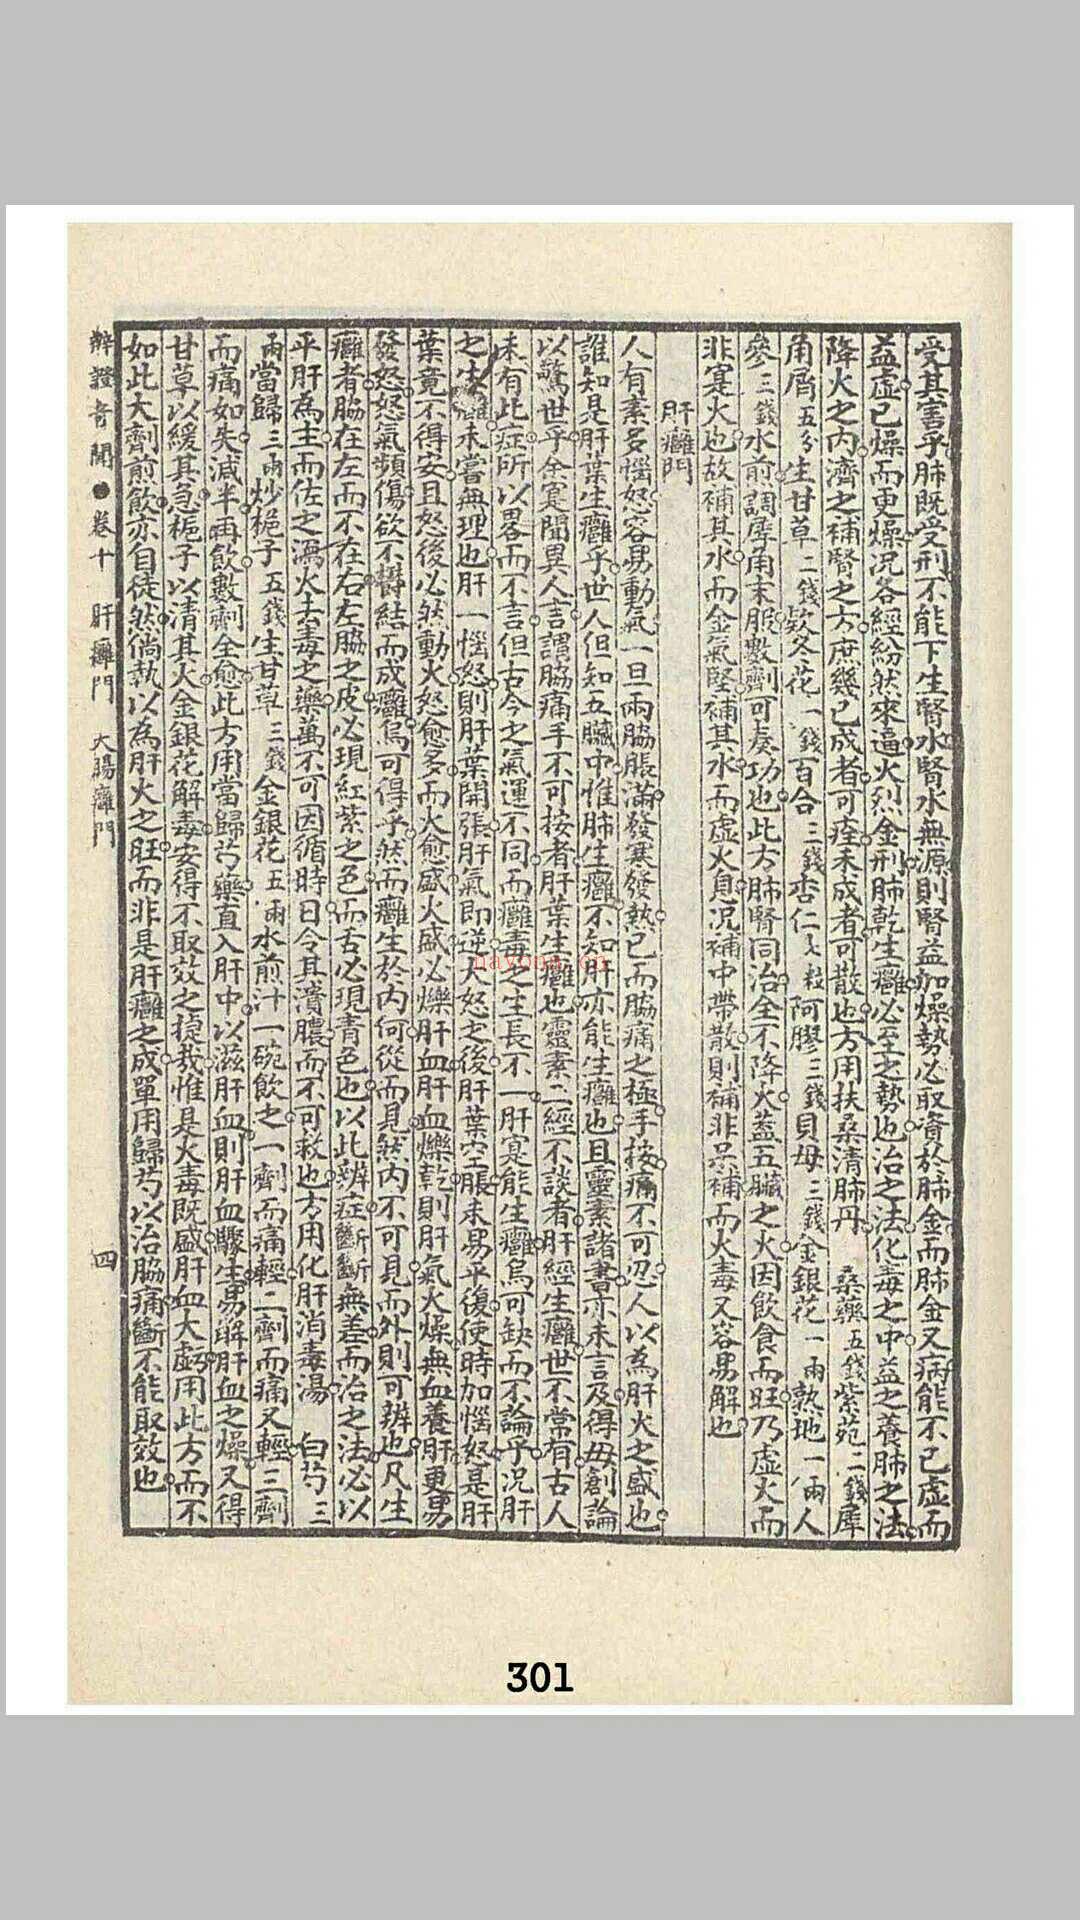 受其害乎肺既受刑不能下生腎水腎水無源則腎益加燥勢必取資於肺金而肺金又病能不已虛而
益虛已燥而更燥况各經紛然來逼火烈金刑肺乾生癰必至之勢也治之法化毒之中益之養肺之法
降火之內濟之補腎之方庶幾已成者可痊未成者可散也方用扶桑清肺丹 桑藥五錢紫苑二錢犀
角屑五分生甘草二錢欵冬花一錢百合三錢杏仁七粒阿膠三錢貝母三錢金銀花一兩熟地一兩人
參三錢水煎調犀角末服數劑可奏功也此方肺腎同治全不降火蓋五臟之火因飲食而旺乃虛火而
非寔火也故補其水而金氣堅補其水而虛火息况補中帶散則補非呆補而火毒又容易解也
肝癰門
人有素多惱怒容易動氣一旦兩脇脹滿發寒發熱已而脇痛之極手按痛不可忍人以為肝火之盛也
誰知是肝葉生癰乎世人但知五臟中惟肺生癰不知肝亦能生癰也且靈素諸書亦未言及得毋創論
以驚世乎余寔聞異人言謂脇痛手不可按者肝葉生癰也靈素二經不談者肝經生癰世不常有古人
未有此症所以畧而不言但古今之氣運不同而癰毒之生長不一肝寔能生癰烏可缺而不論乎况肝
之生癰未嘗無理也肝一惱怒則肝葉開張肝氣即逆大怒之後肝葉空脹未易平復使時加惱怒是肝
葉竟不得安且怒後必然動火怒愈多而火愈盛火盛必爍肝血肝血爍乾則肝氣火燥無血養肝更易
發怒怒氣頻傷欲不欝結而成癰烏可得乎然而癰生於內何從而見然內不可見而外則可辨也凡生
癰者脇在左而不在右左脇之皮必現紅紫之色而舌必現青色也以此辨症斷斷無差而治之法必以
平肝為主而佐之瀉火去毒之藥萬不可因循時日令其潰膿而不可救也方用化肝消毒湯 白芍三
兩當歸三兩炒梔子五錢生甘草三錢金銀花五兩水煎汁一碗飲之一劑而痛輕二劑而痛又輕三劑
而痛如失減半再飲數劑全愈此方用當歸芍藥直入肝中以滋肝血則肝血驟生易解肝血之燥又得
甘草以緩其急梔子以清其火金銀花解毒安得不取效之捷哉惟是火毒既盛肝血大虧用此方而不
如此大劑煎飲亦自徒然倘執以為肝火之旺而非是肝癰之成單用歸芍以治脇痛斷不能取效也
辨證奇聞●卷十 肝癰門 大腸癰門 四
nayona.cn
301